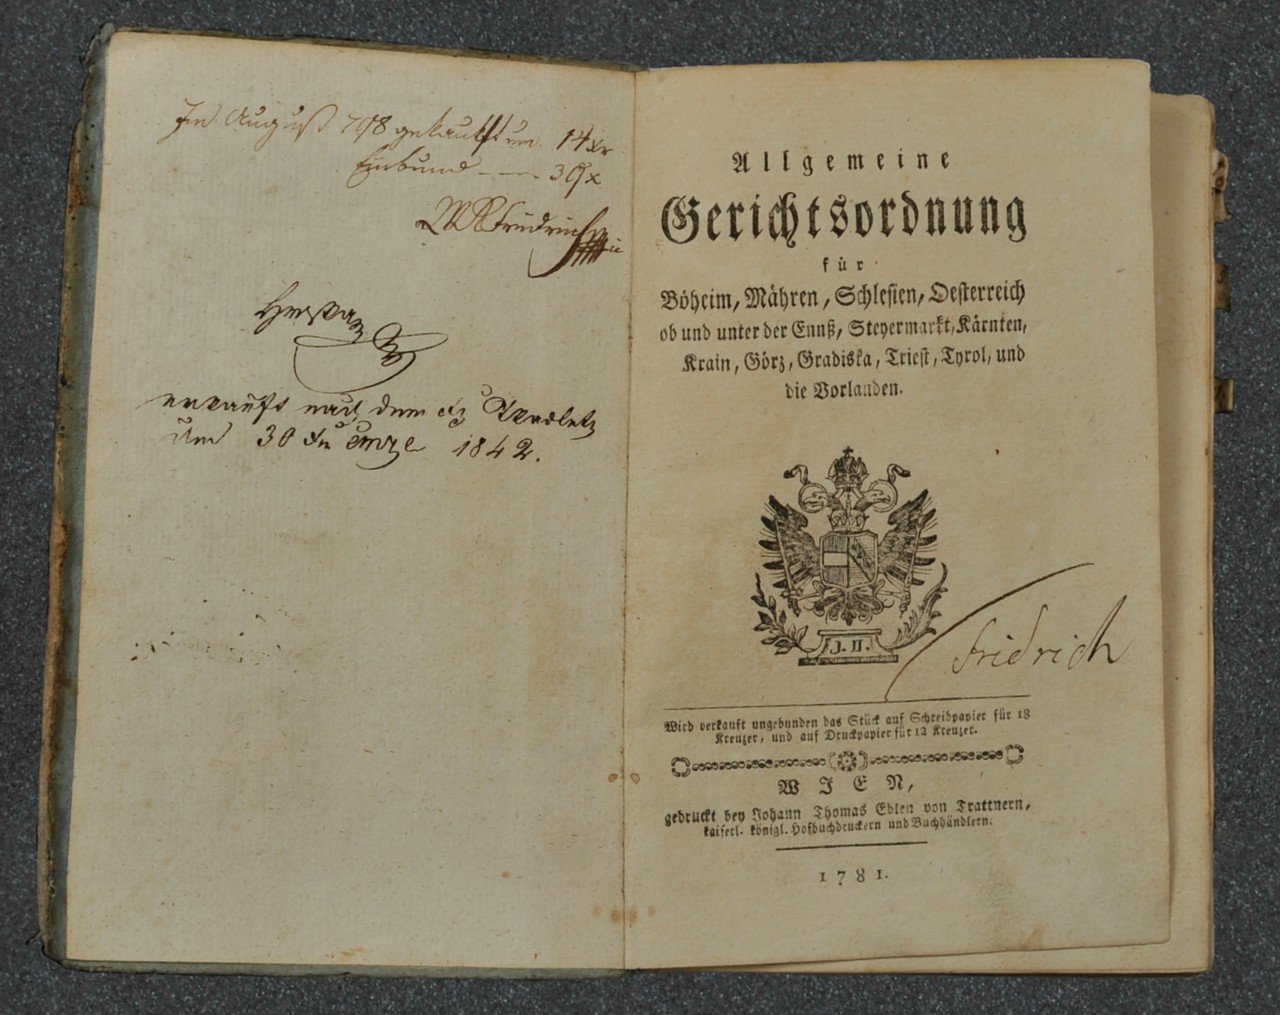 Im August 798 gekauft um 14 xr
Einbund — 30 x
Fridrich
erkauft nach dem
um 30 1842.
Allgemeine
Gerichtsordnung
für
Böheim, Mähren, Schlesien, Oesterreich
ob und unter der Ennß, Steyermarkt, Kärnten,
Krain, Görz, Gradiska, Triest, Tyrol, und
die Vorlanden.
J. II.
Fridrich
Wird verkauft ungebunden das Stück auf Schreibpapier für 18
Kreuzer, und auf Druckpapier für 12 Kreuzer.
WIEN,
gedruckt bey Johann Thomas Edlen von Trattnern,
kaiserl. königl. Hofbuchdruckern und Buchhändlern.
1781.